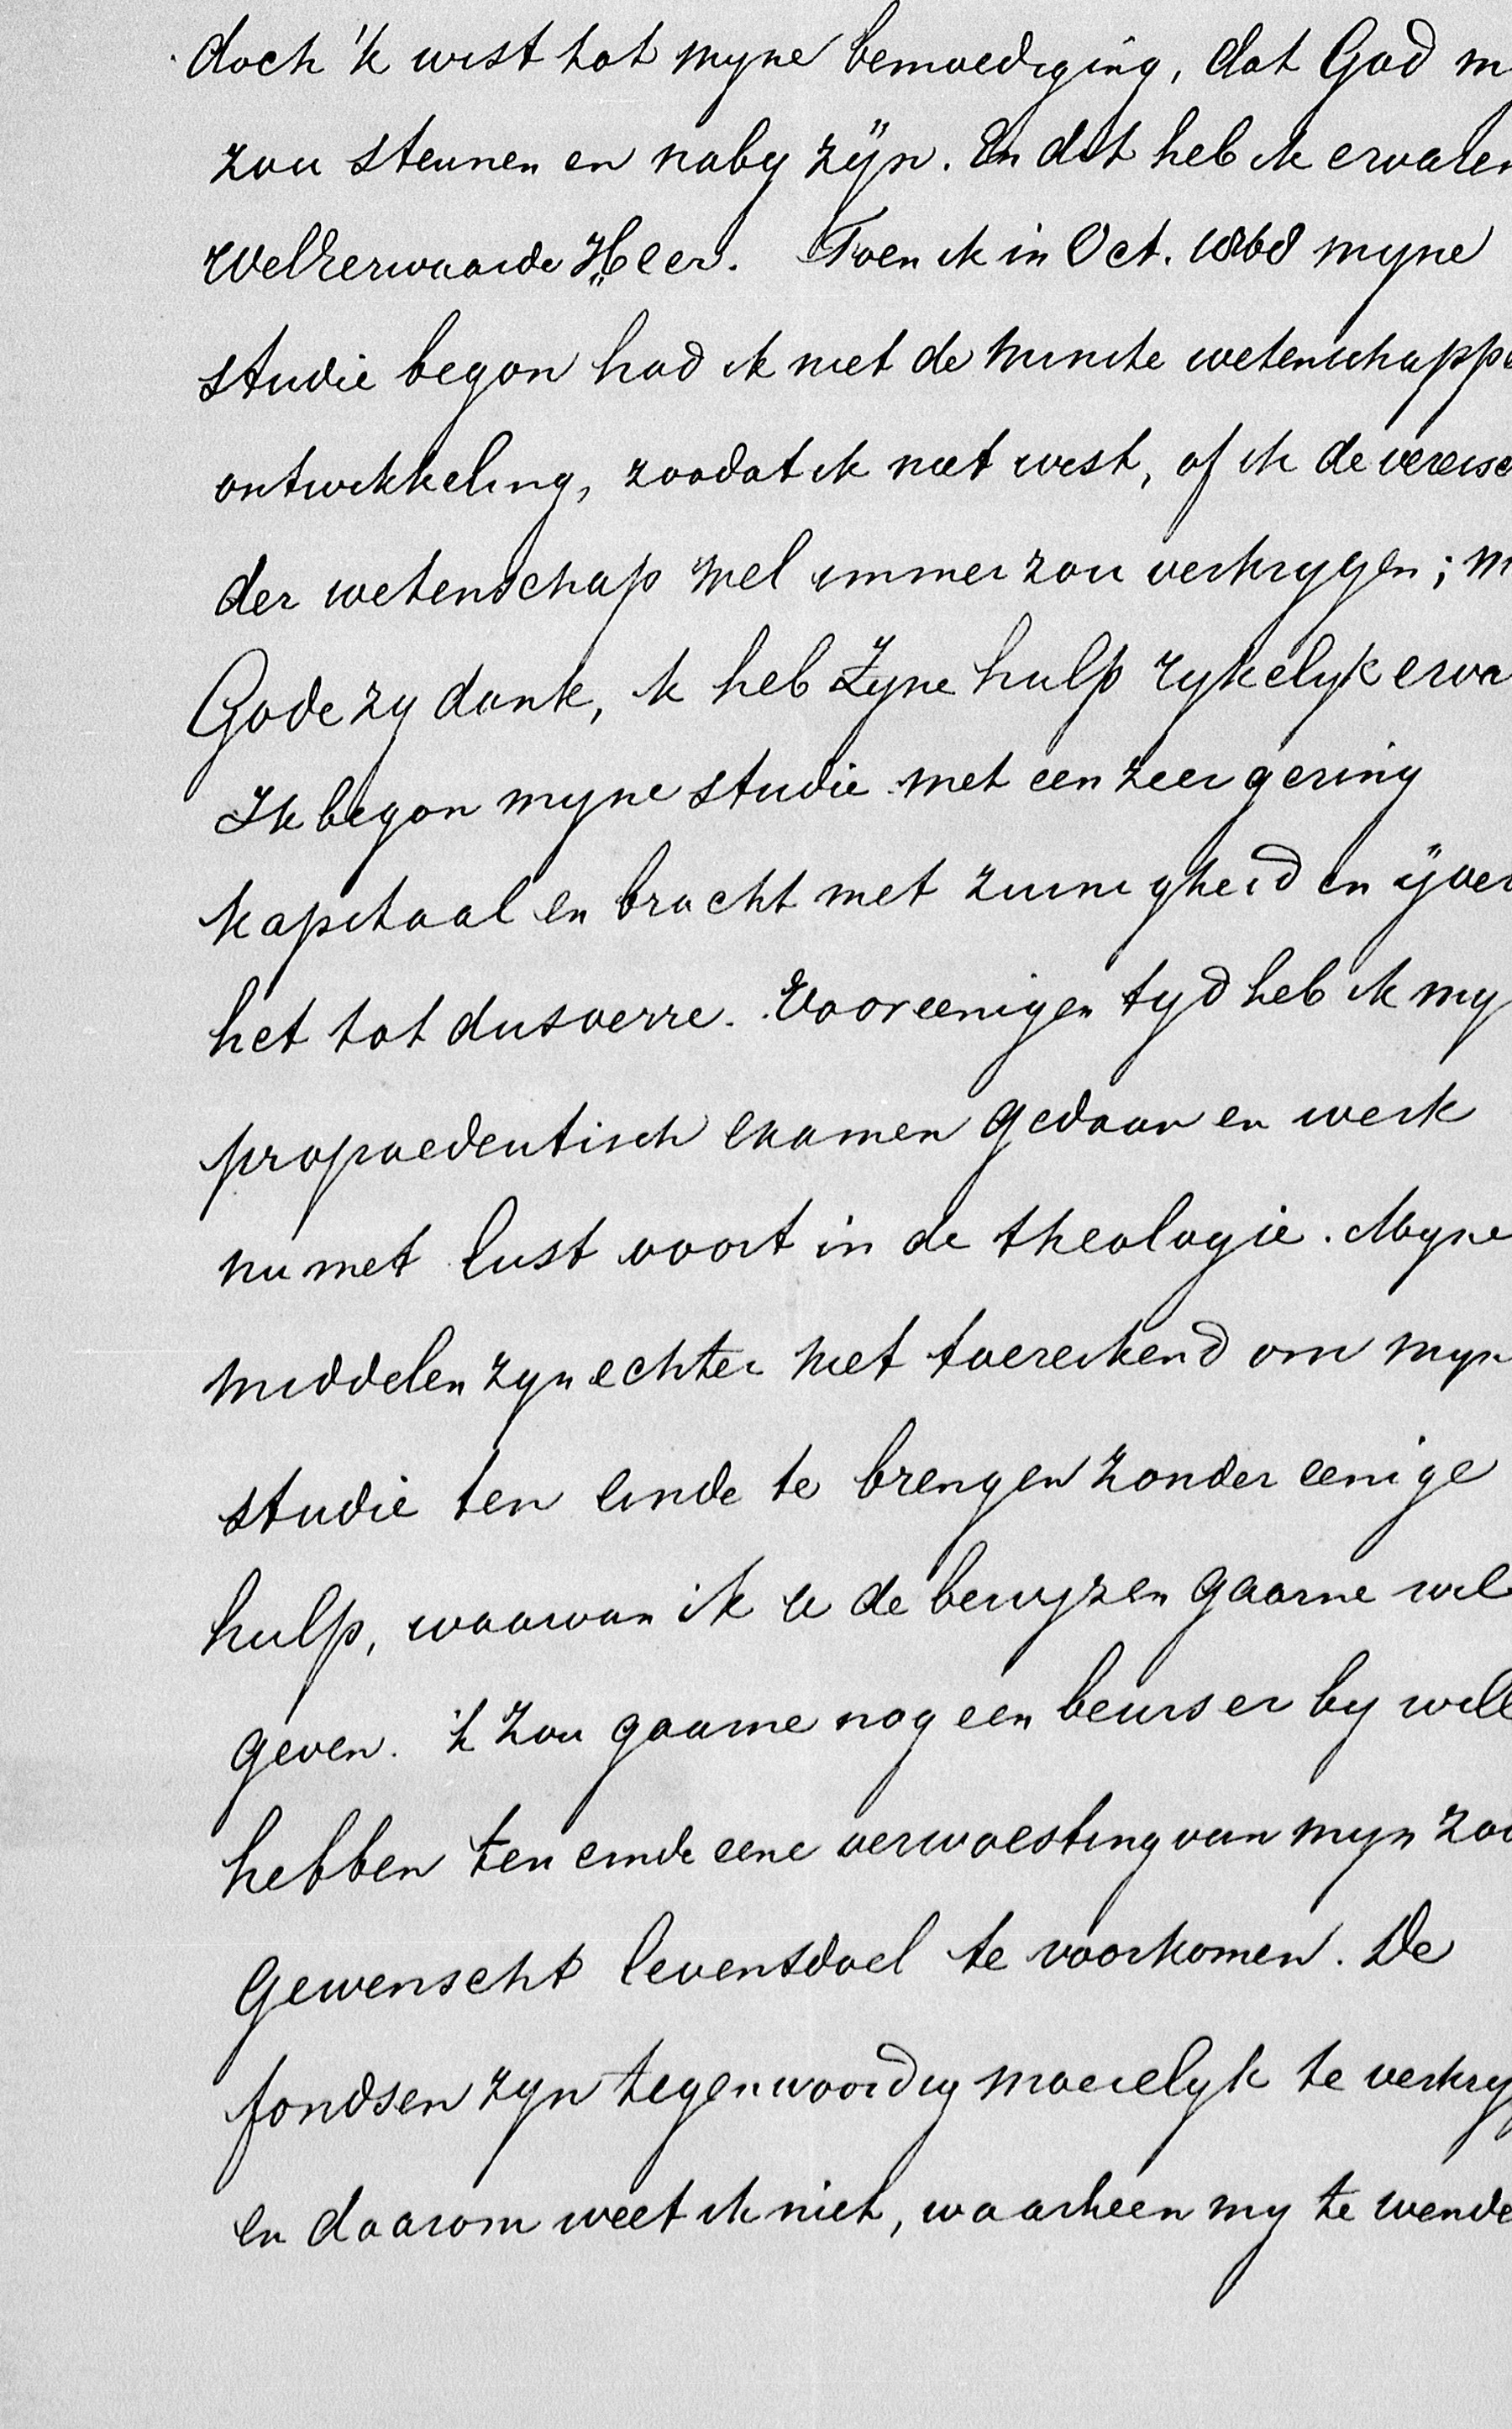 doch 'k wist tot myne bemoediging, dat God m
zou steunen en naby zÿn. En dit heb ik ervaren
WelEerwaarde Heer. Toen ik in Oct. 1868 myne
studie begon had ik niet de minste wetenschappe
ontwikkeling, zoodat ik niet wist, of ik de vereisc
der wetenschap wel immer zou verkrygen; m
Gode zy dank, ik heb Zyne hulp rykelyk erva
Ik begon myne studie met een zeer gering
kapitaal en bracht met zuinigheid en ÿver
het tot dusverre. Voor eenigen tyd heb ik my
propaedeutisch examen gedaan en werk
nu met lust voort in de theologie. Myne
middelen zyn echter niet toereikend om myn
studie ten einde te brengen zonder eenige
hulp, waarvan ik U de bewyzen gaarne wil
geven. 'k Zou gaarne nog een beurs er by will
hebben ten einde eene verwoesting van myn zoo
gewenscht levensdoel te voorkomen. De
fondsen zyn tegenwoordig moeielyk te verkryg
en daarom weet ik niet, waarheen my te wende